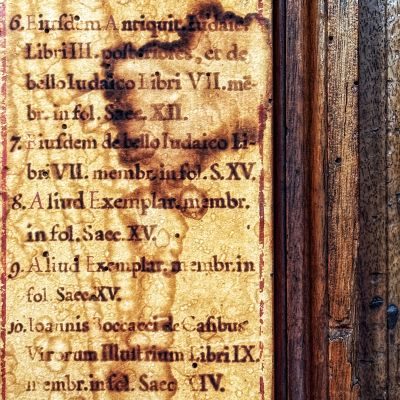 6. Eiusdem Antiquit. Iudaic.
Libri III. posteriores, et de
bello Iudaico Libri VII. mē-
br. in fol. Saec. XII.
7. Eiusdem de bello Iudaico Li-
bri VII. membr. in fol. S. XV.
8. Aliud Exemplar. membr.
in fol. Saec. XV.
9. Aliud Exemplar. membr. in
fol. Saec. XV.
10. Ioannis Boccacci de Casibus
Virorum Illustrium Libri IX.
membr. in fol. Saec. XIV.